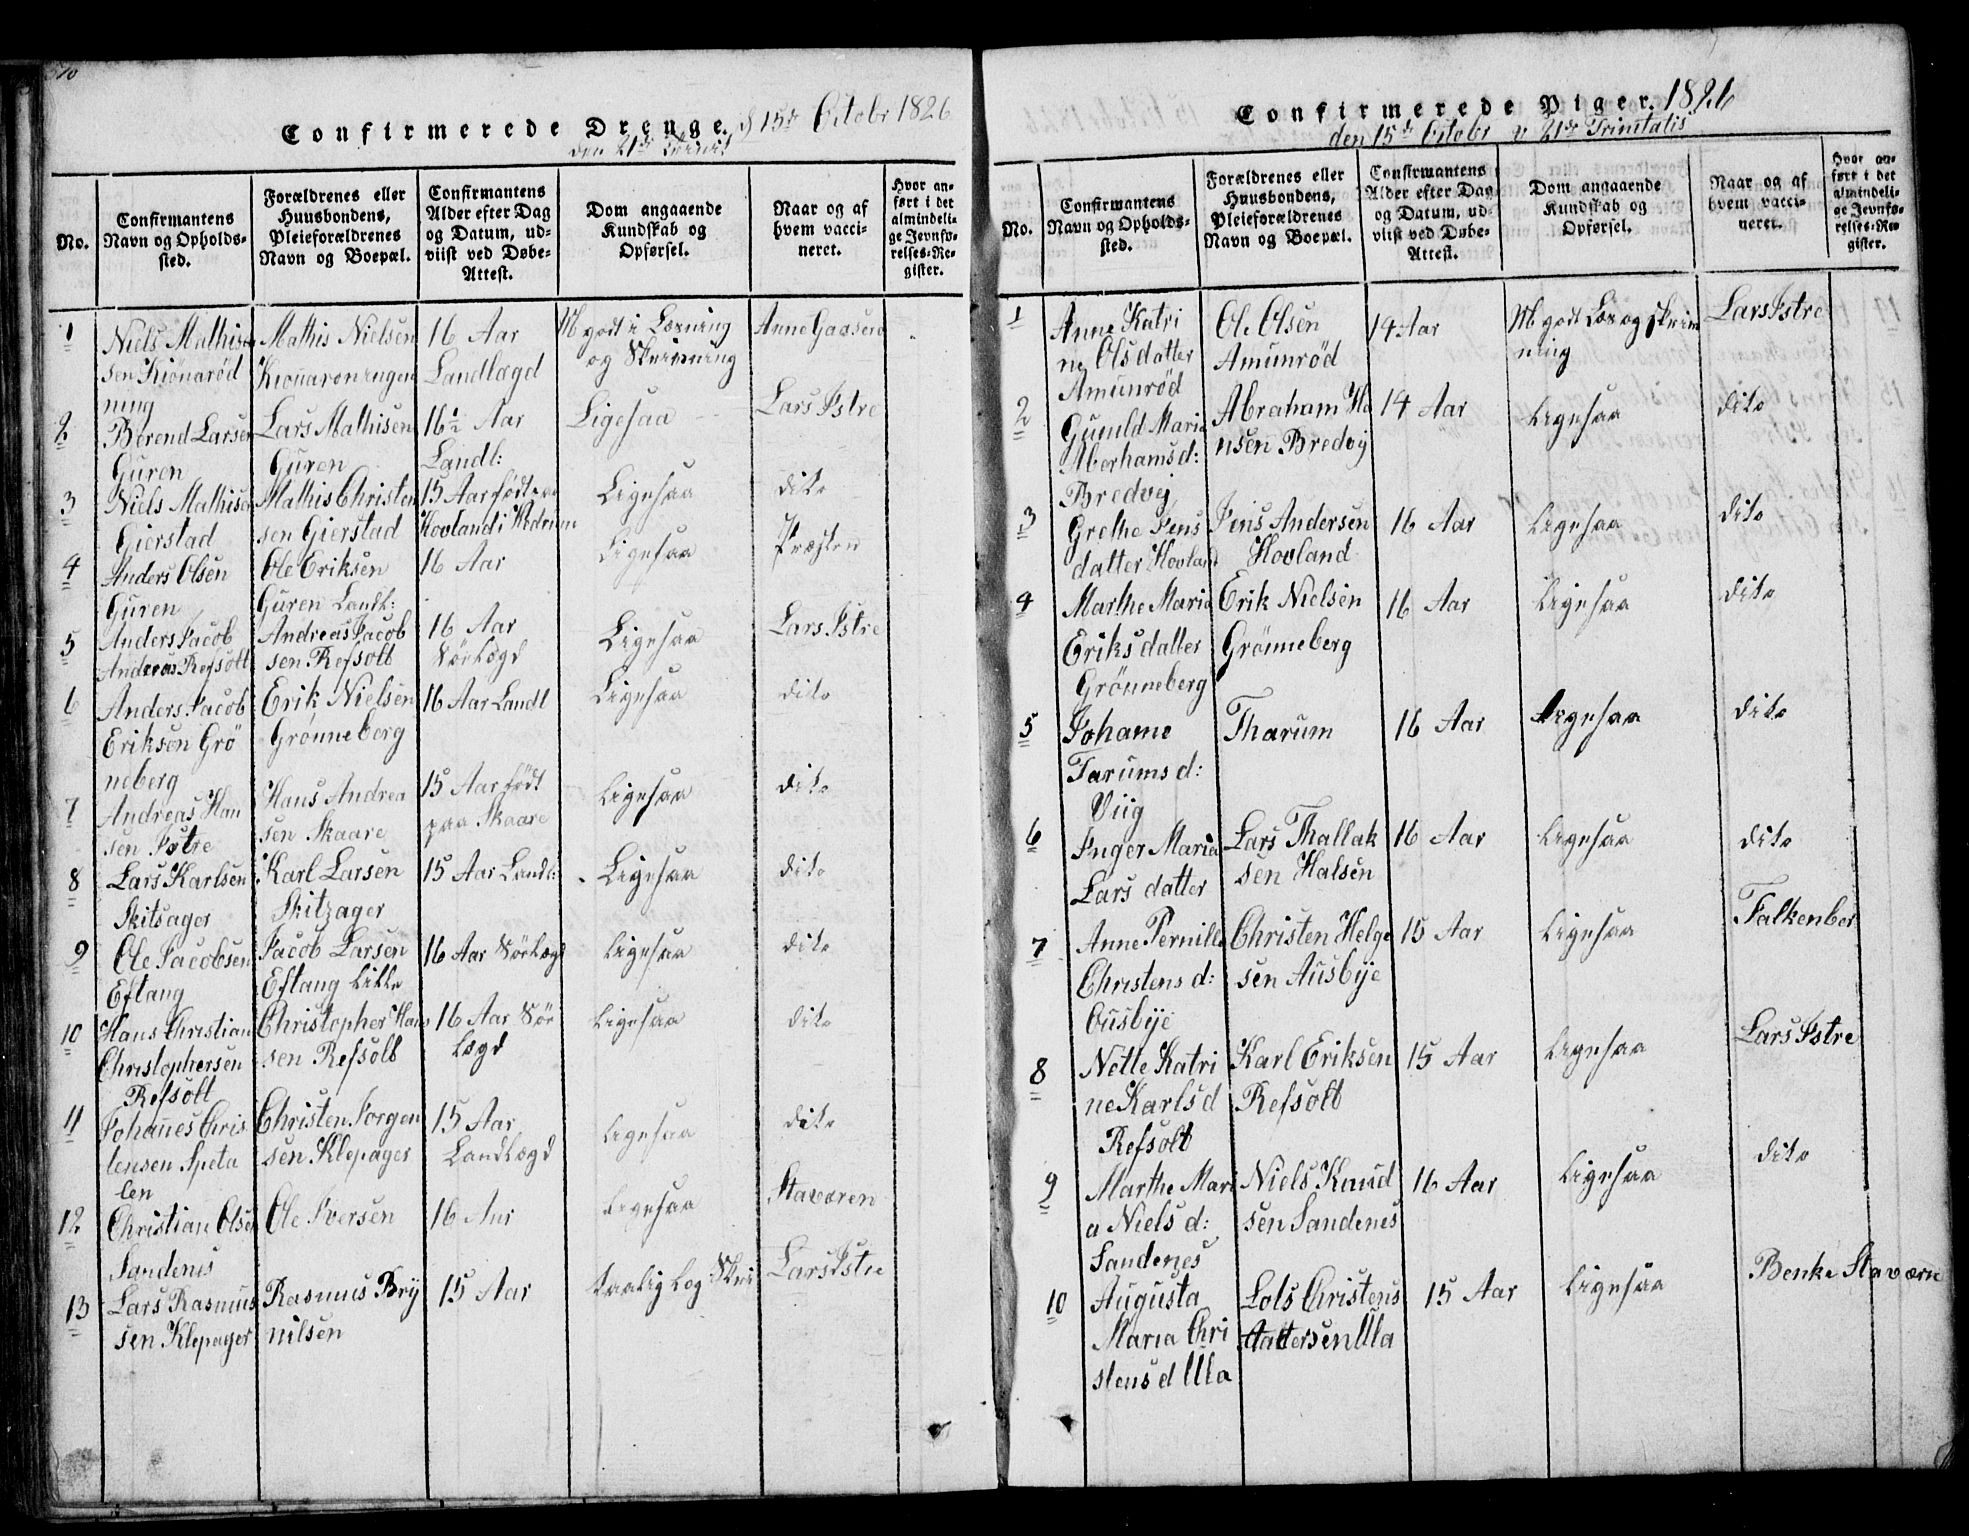 Confirmerede Drenge. d 15de Octobr 1826
den 21de Trinit
No.
Confirmantens
Navn og Opholds-
sted.
Forældrenes eller
Huusbondens,
Pleieforældrenes
Navn og Boepæl.
Confirmantens
Alder efter Dag
og Datum, ud-
viist ved Døbe-
Attest.
Dom angaaende
Kundskab og
Opførsel.
Naar og af
hvem vacci-
neret.
Hvor an-
ført i det
almindeli-
ge Jevnfø-
relses-Re-
gister.
1
Niels Mathise
sen Kiönarød
ning
Mathis Nielsen
16 Aar
Landlægd
M godt i Læsning
og Skrivning
Anne
2
Berend Larsen
Guren
Lars Mathisen
Guren
16½ Aar
Landl:
Ligesaa
Lars Istre
3
Niels Mathisen
Gierstad
Mathis Christen
sen Gierstad
15 Aar födt paa
Hovland i Hedrum
Ligesaa
dito
4
Anders Olsen
Guren
Ole Eriksen
Guren Landl:
16 Aar
Ligesaa
Præsten
5
Anders Jacob
Andreas Refsolt
Andreas Jacob
sen Refsolt
16 Aar
Sörlægd
Ligesaa
Lars Istre
6
Anders Jacob
Eriksen Grö
neberg
Erik Nielsen
Grønneberg
16 Aar Landl
Ligesaa
dito
7
Andreas Han
sen Istre
Hans Andrea
sen Skaare
15 Aar födt
paa Skaare
Ligesaa
dito
8
Lars Karlsen
Skitsager
Karl Larsen
Skitzager
15 Aar Landl:
Ligesaa
dito
9
Ole Jacobsen
Eftang
Jacob Larsen
Eftang Lille
16 Aar Sörlægd
Ligesaa
dito
10
Hans Christian
Christophersen
Refsolt
Christopher Han
sen Refsolt
16 Aar Sör
lægd
Ligesaa
dito
11
Johañes Chris
tensen Speta
len
Christen Jorgen
sen Klepager
15 Aar
Landlægd
Ligesaa
dito
12
Christian Olsen
Sandenes
Ole Iversen
16 Aar
Ligesaa
Staværen
13
Lars Rasmus
sen Klepager
Rasmus Brÿ
nilsen
15 Aar
taalig L og Skri
Lars Istre
Confirmerede Piger. 1826
den 15de Octobr 21de Trinitatis
No.
Confirmantens
Navn og Opholds-
sted.
Forældrenes eller
Huusbondens,
Pleieforældrenes
Navn og Boepæl.
Confirmantens
Alder efter Dag
og Datum, ud-
viist ved Døbe-
Attest.
Dom angaaende
Kundskab og
Opførsel.
Naar og af
hvem vacci-
neret.
Hvor an-
ført i det
almindeli-
ge Jevnfø-
relses-Re-
gister.
1
Anne Katri
ne Olsdatter
Amunrød
Ole Olsen
Amunrød
14 Aar
M godt Læs og Skriv
ning
Lars Istre
2
Gunild Maria
Aberhamsd:
Bredvej
Abraham Ha
nsen Bredvÿ
14 Aar
Ligesaa
dito
3
Grethe Jens
datter Hovland
Jens Andersen
Hovland
16 Aar
Ligesaa
dito
4
Marthe Maria
Eriksdatter
Grönneberg
Erik Nielsen
Grønneberg
16 Aar
Ligesaa
dito
5
Johanne
Tarums d:
Viig
Tharum
16 Aar
Ligesaa
dito
6
Inger Maria
Lars datter
Lars Thallak
sen Halsen
16 Aar
Ligesaa
dito
7
Anne Pernille
Christens d:
Ousbÿe
Christen Helge
sen Ausbÿe
15 Aar
Ligesaa
Falkenber
8
Nette Katri
ne Karlsd
Refsolt
Karl Eriksen
Refsolt
15 Aar
Ligesaa
Lars Istre
9
Marthe Mari
a Niels d:
Sandenes
Niels Knud
sen Sandenes
16 Aar
Ligesaa
dito
10
Augusta
Maria Chri
stens d Ula
Lols Christens
Ula
15 Aar
Ligesaa
Benke Staværn